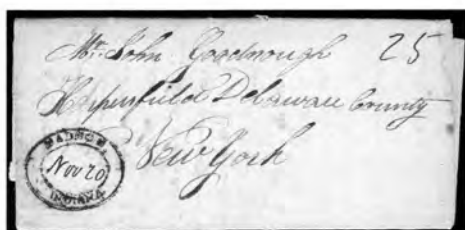 Mr. John Goodnough 25
Harpersfield Delaware County
New York
MADISON
Nov 20
INDIANA